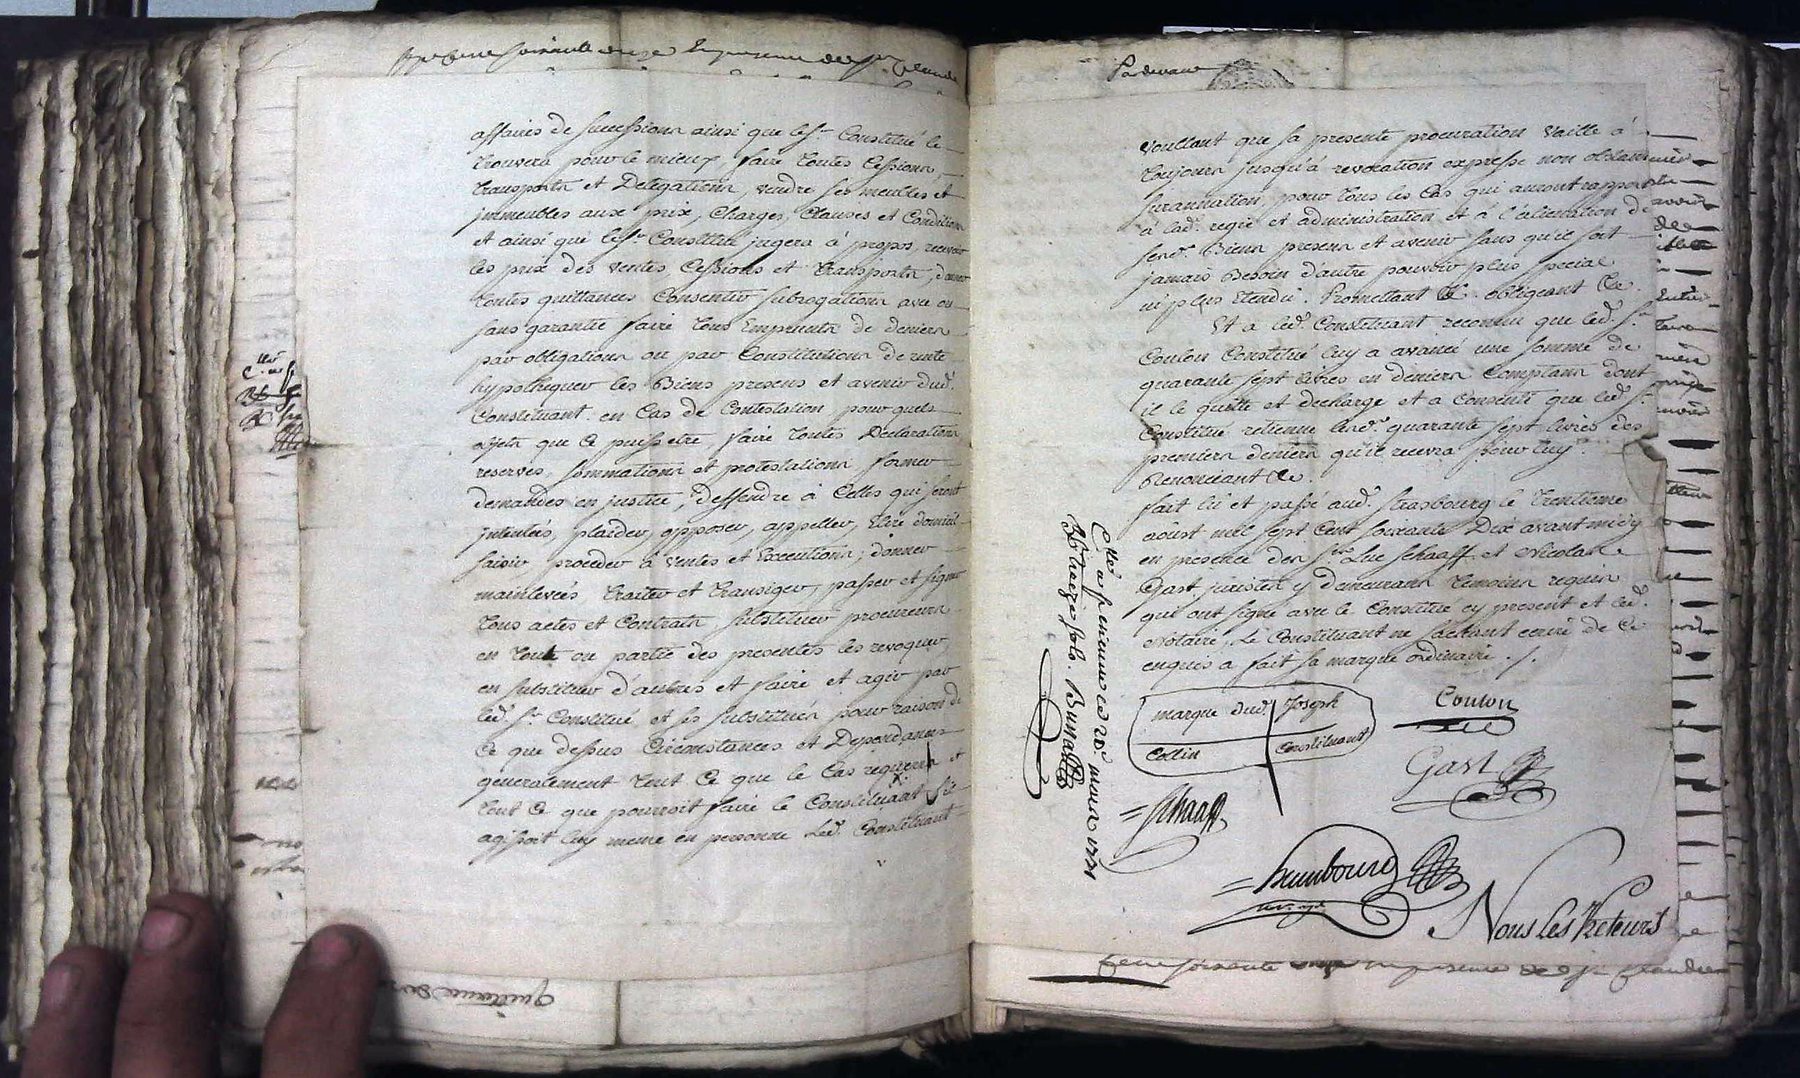 affaires de successions ainsi que led. Sr. Constitué le
trouvera pour le mieux, faire toutes Cessions,
transports et Delegations, vendre ses meubles et
jmmeubles aux prix, Charges, Clauses et Conditions
et ainsi que led. Sr. Constitué jugera à propos, recevoir
les prix des ventes Cessions et transports, donner
toutes quittances Consentir subrogations avec ou
sans garantie faire tous Emprunts de deniers
par obligations ou par Constitutions de rente
hypothequer les Biens presens et avenir dud.
Constituant. en Cas de Contestation pour quels
objets que Ce puisse etre, faire toutes Declarations
reserves, sommations et protestations former
demandes en justice, deffendre à Celles qui seront
jntentées, plaider, opposer, appeller, Elire domicil
saisir proceder à ventes et Executions; donner
mainlevées, traiter et transiger, passer et signer
tous actes et Contrats, substituer procureurs
en tout ou partie des presentes les revoquer,
en substituer d'autres et faire et agir par
led. Sr. Constitué et ses substitués pour raison de
Ce que dessus Circonstances et Dependances
generalement tout Ce que le Cas requerra et
tout Ce que pourroit faire le Constituant s'il
agissoit luy meme en personne Led. Constituant
Pardevant
voullant que sa presente procuration vaille à
toujours jusqu'à revocation expresse non obstant
surannation, pour tous les Cas qui auront rapport
à lad. regie et administration et à l'alienation de
send. Biens presens et avenir sans qu'il soit
jamais Besoin d'autre pouvoir plus special
ni plus Etendu. Promettant &c. obligeant &c.
Et a led. Constituant reconnu que led. Sr.
Coulon Constitué luy a avancé une somme de
quarante sept livres en deniers Comptans dont
il le quitte et decharge et a Consenti que led. Sr.
Constitué retienne lesd. quarante sept livres des
premiers deniers qu'il recevra pour luy.
Renonceant &c.
fait lû et passé aud. Strasbourg le trentieme
aoust mil sept Cent soixante Dix avant midy
en presence des Srs. Luc Schaaff et Nicolas
Gast juristes y demeurans temoins requis
qui ont signé avec le Constitué cy present et led.
Notaire, Le Constituant ne sachant ecrire de Ce
enquis a fait sa marque ordinaire ./.
marque dud. Joseph
Collin Constituant
Coulon
Gast
Schaaff
Humbourg
Nous Les Preteurs